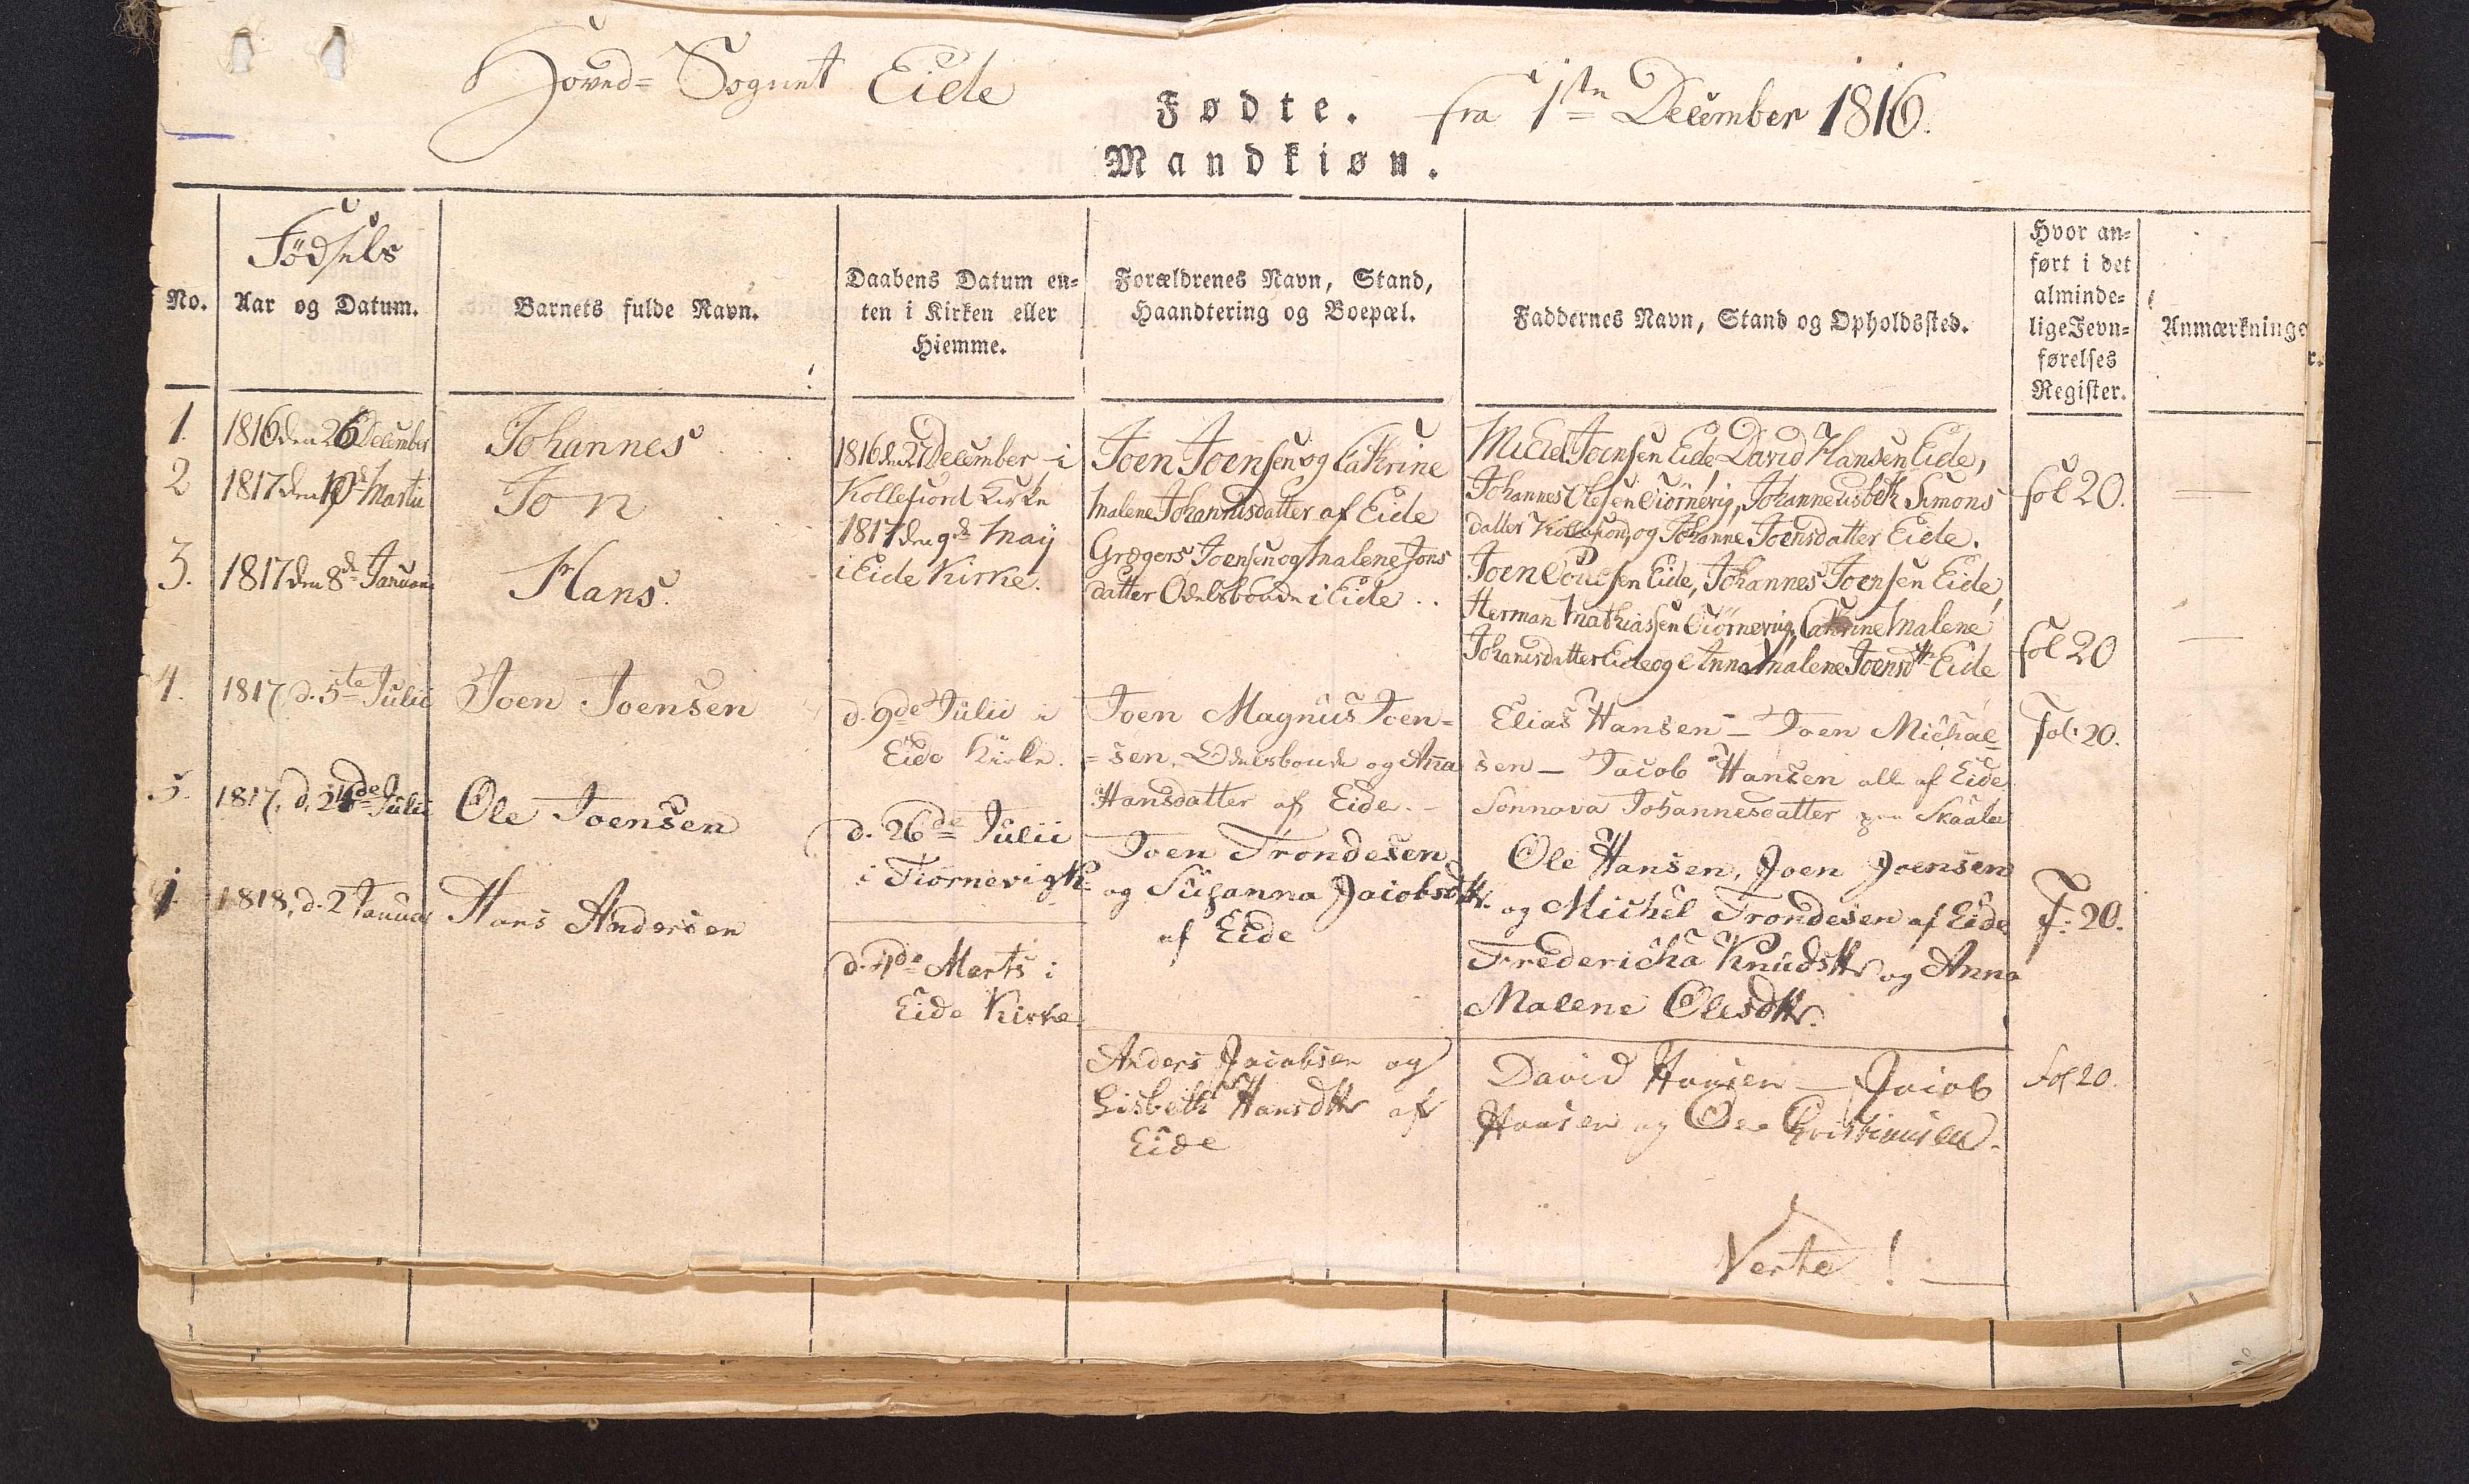 Hoved= Sognet Eide
Fødte. fra 1ste December 1816.
Mandkiøn.
No.
Fødsels
Aar og Datum.
Barnets fulde Navn.
Daabens Datum en=
ten i Kirken eller
Hiemme.
Forældrenes Navn, Stand,
Haandtering og Boepæl.
Faddernes Navn, Stand og Opholdssted.
Hvor an=
ført i det
alminde=
lige Jevn=
førelses
Register.
Anmærkninge
r.
1.
1816 den 26 December
Johannes
1816 den 27 December i
Kollefiord Kirke
Joen Joensen og Cathrine
Malene Johannisdatter af Eide
Joensen Eide, David Hansen Eide,
Johannes Olesen Tiörnevig, Johanne Lisbeth Simons
datter Kollefiord, og Johanne Joensdatter Eide.
fol 20.
2
1817 den Martii
Jon
1817 den 9de Maij
i Eide Kirke.
Grægers Joensen og Malene Jons
datter Odelsbonde i Eide ..
Joen Eide, Johannes Joensen Eide,
Herman Mathiassen Tiörnevig, Cathrine Malene
Johanisdatter Eide og Anna Malene Joensdtr Eide
fol 20
3.
1817 den 8de Januari
Hans.
4.
1817, d. 5te Julii
Joen Joensen
d. 9de Julii i
Eide Kirke.
Joen Magnus Joen=
=sen, Odelsbonde og Ana
Hansdatter af Eide. -
Elias Hansen - Joen Michael
sen - Jacob Hansen alle af Eide
Sonnava Johannesdatter paa Skaale
Fol. 20.
5.
1817, d. Julii
Ole Joensen
d. 26de Julii
i Tiornevig K
Joen Trondesen
og Susanna Jacobsdtr.
af Eide
Ole Hansen, Joen Joensen
og Michel Trondesen af Eide
Fredericha Knudsdtr og Anna
Malene Olesdtr.
F: 20.
1.
1818, d. 2 Januar
Hans Andersen
d. 4de Marts i
Eide Kirke
Anders Jacobsen og
Lisbeth Hansdtr af
Eide
David Hansen - Jacob
Hansen og Ole Christiansen.
Fol 20.
Verte! -